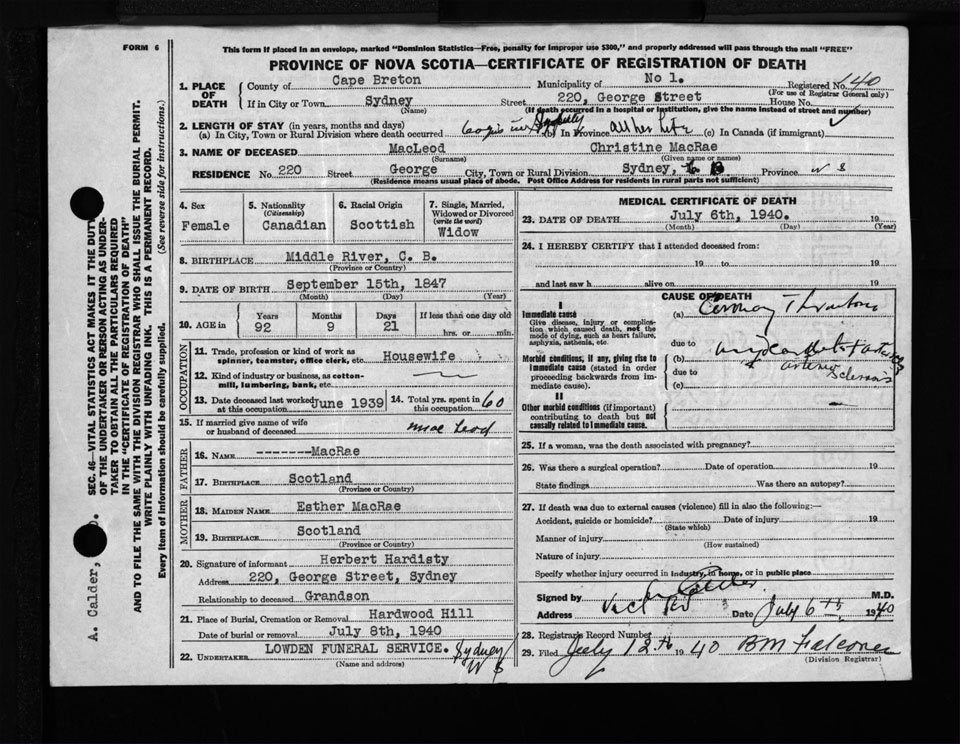 FORM 6
This form if placed in an envelope, marked "Dominion Statistics—Free, penalty for improper use $300," and properly addressed will pass through the mail "FREE"
PROVINCE OF NOVA SCOTIA—CERTIFICATE OF REGISTRATION OF DEATH
1. PLACE OF DEATH
County of Cape Breton Municipality of No 1. Registered No. 140
(For use of Registrar General only)
If in City or Town Sydney Street 220, George Street House No.
(Name) (If death occurred in a hospital or institution, give the name instead of street and number)
2. LENGTH OF STAY (in years, months and days)
(a) In City, Town or Rural Division where death occurred (b) In Province all her life (c) In Canada (if immigrant)
3. NAME OF DECEASED MacLeod Christine MacRae
(Surname) (Given name or names)
RESIDENCE No. 220 Street George City, Town or Rural Division Sydney, C B Province N S
(Residence means usual place of abode. Post Office Address for residents in rural parts not sufficient)
4. Sex
Female
5. Nationality
(Citizenship)
Canadian
6. Racial Origin
Scottish
7. Single, Married, Widowed or Divorced
(write the word)
Widow
8. BIRTHPLACE Middle River, C. B.
(Province or Country)
9. DATE OF BIRTH September 15th, 1847
(Month) (Day) (Year)
10. AGE in
Years Months Days If less than one day old
92 9 21 hrs. or min.
OCCUPATION
11. Trade, profession or kind of work as spinner, teamster, office clerk, etc. Housewife
12. Kind of industry or business, as cotton-mill, lumbering, bank, etc.
13. Date deceased last worked at this occupation June 1939
14. Total yrs. spent in this occupation 60
15. If married give name of wife or husband of deceased Mac Leod
FATHER
16. NAME --------MacRae
17. BIRTHPLACE Scotland
(Province or Country)
MOTHER
18. MAIDEN NAME Esther MacRae
19. BIRTHPLACE Scotland
(Province or Country)
20. Signature of informant Herbert Hardisty
Address 220, George Street, Sydney
Relationship to deceased Grandson
21. Place of Burial, Cremation or Removal Hardwood Hill
Date of burial or removal July 8th, 1940
22. UNDERTAKER LOWDEN FUNERAL SERVICE. Sydney N S
(Name and address)
MEDICAL CERTIFICATE OF DEATH
23. DATE OF DEATH July 6th, 1940. 19
(Month) (Day) (Year)
24. I HEREBY CERTIFY that I attended deceased from:
19 to 19
and last saw h alive on 19
CAUSE OF DEATH
I
Immediate cause
Give disease, injury or complication which caused death, not the mode of dying, such as heart failure, asphyxia, asthenia, etc.
(a) Coronary Thrombosis
due to
Morbid conditions, if any, giving rise to immediate cause (stated in order proceeding backwards from immediate cause).
(b) Myocarditis
due to
arterio sclerosis
(c)
II
Other morbid conditions (if important) contributing to death but not causally related to immediate cause.
25. If a woman, was the death associated with pregnancy?
26. Was there a surgical operation? Date of operation 19
State findings Was there an autopsy?
27. If death was due to external causes (violence) fill in also the following:—
Accident, suicide or homicide? Date of injury 19
(State which)
Manner of injury
(How sustained)
Nature of injury
Specify whether injury occurred in industry, in home, or in public place
Signed by Calder M.D.
Address Date July 6th 1940
28. Registrars Record Number
29. Filed July 12th 1940 BM Falconer
(Division Registrar)
SEC. 46—VITAL STATISTICS ACT MAKES IT THE DUTY
OF THE UNDERTAKER OR PERSON ACTING AS UNDER-
TAKER TO OBTAIN ALL THE PARTICULARS REQUIRED
IN THE "CERTIFICATE OF REGISTRATION OF DEATH"
AND TO FILE THE SAME WITH THE DIVISION REGISTRAR WHO SHALL ISSUE THE BURIAL PERMIT.
WRITE PLAINLY WITH UNFADING INK. THIS IS A PERMANENT RECORD.
Every item of information should be carefully supplied. (See reverse side for instructions.)
A. Calder,